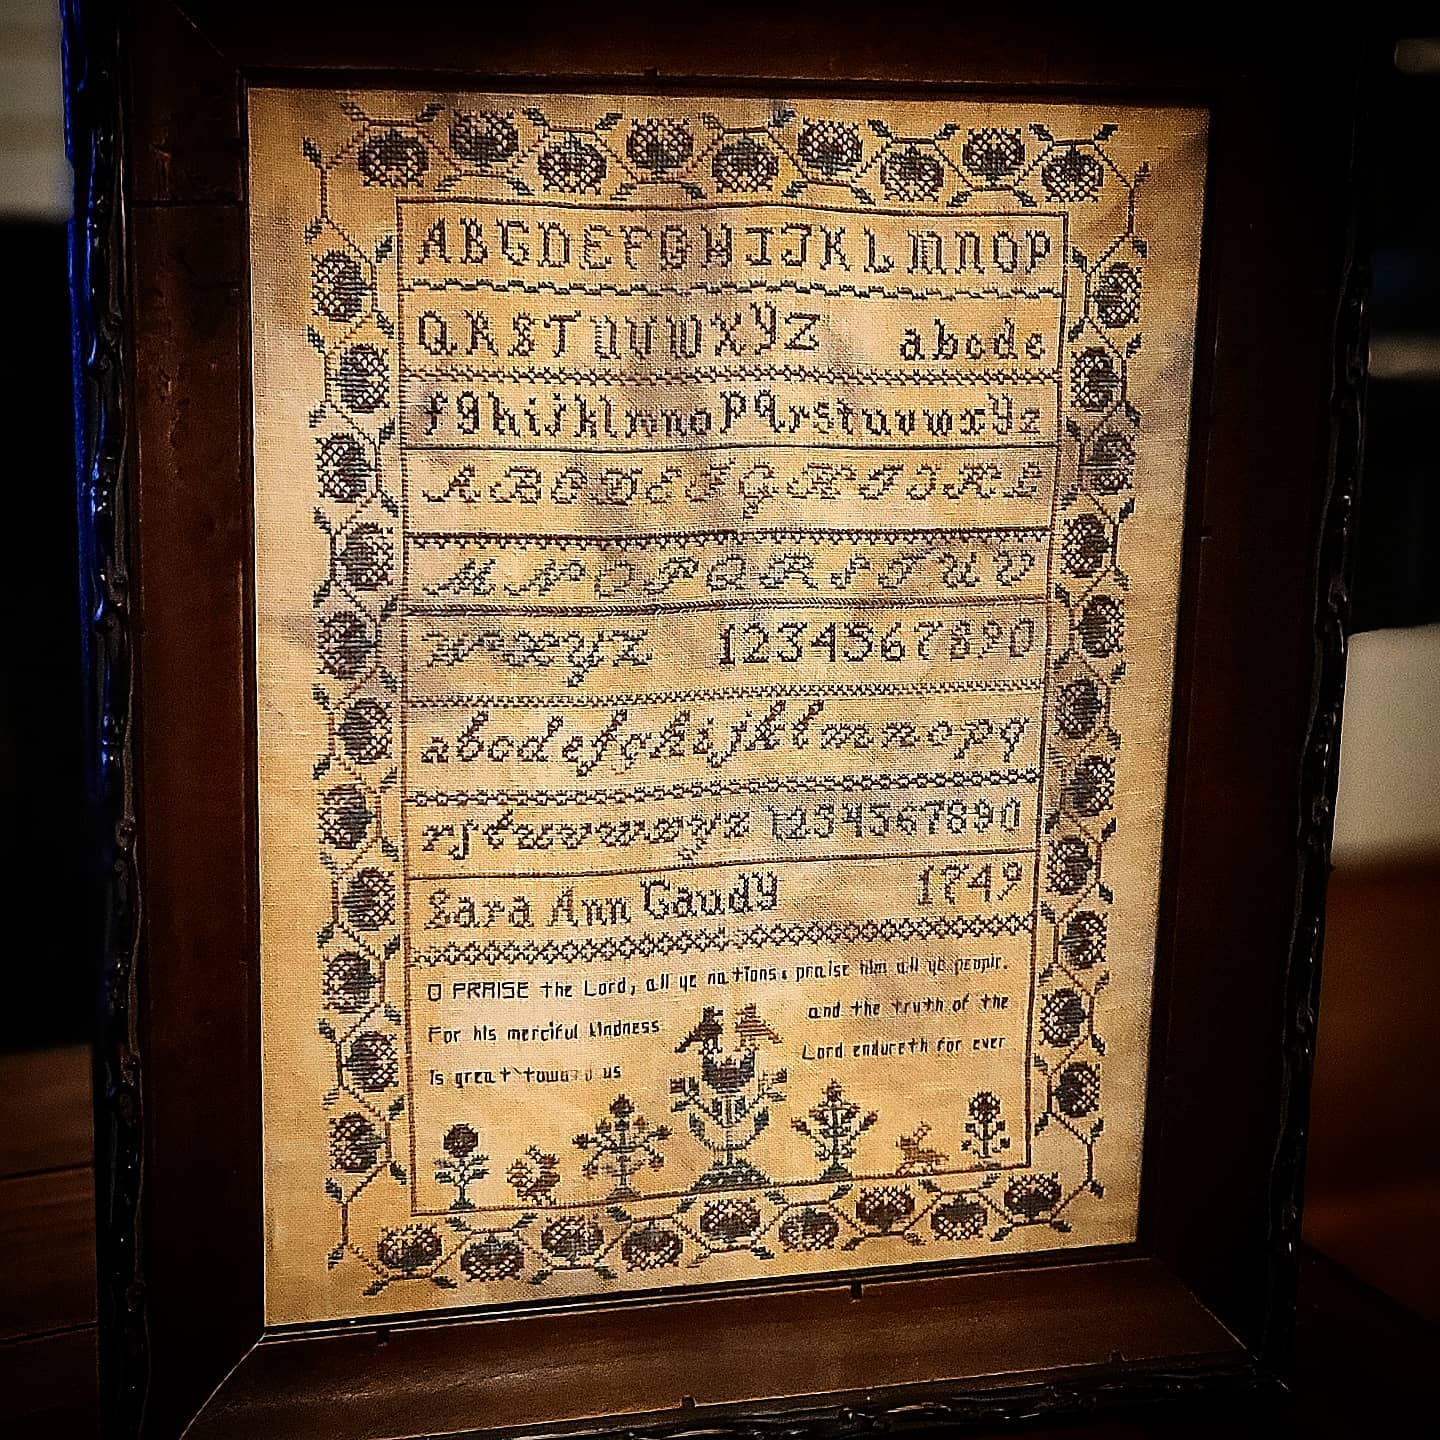 ABCDEFGHIJKLMNOP
QRSTUVWXYZ abcde
fghijklmnopqrstuvwxyz
ABCDEFGHIJKL
MNOPQRSTUV
WXYZ 1234567890
abcdefghijklmnopq
rstuvwxyz 1234567890
Sara Ann Gaudy 1749
O PRAISE the Lord, all ye nations: praise him all ye people.
For his merciful kindness and the truth of the
Is great toward us Lord endureth for ever